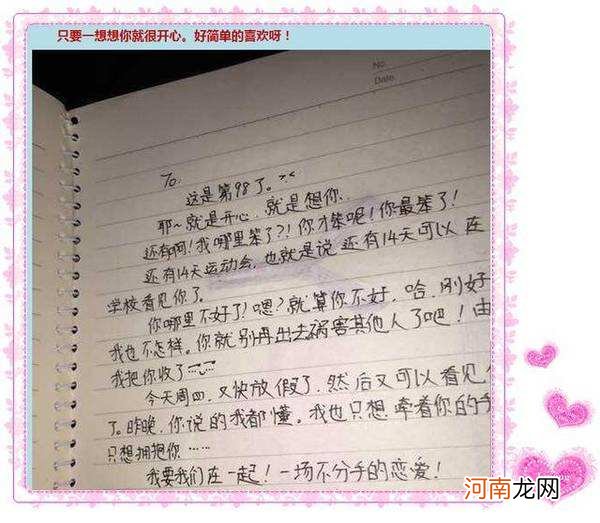 只要一想想你就很开心。好简单的喜欢呀！
No.
Date
To.
这是第98了。><
耶~就是开心.就是想你..
还有啊!我哪里笨了?!你才笨呢!你最笨了!
还有14天运动会,也就是说还有14天可以在
学校看见你了。
你哪里不好了!嗯?就算你不好,哈,刚好
我也不怎样。你就别再出去祸害其他人了吧!由
我把你收了
今天周四,又快放假了.然后又可以看见
了。昨晚,你说的我都懂。我也只想牵着你的手
只想拥抱你……
我要我们在一起!一场不分手的恋爱!
河南龙网